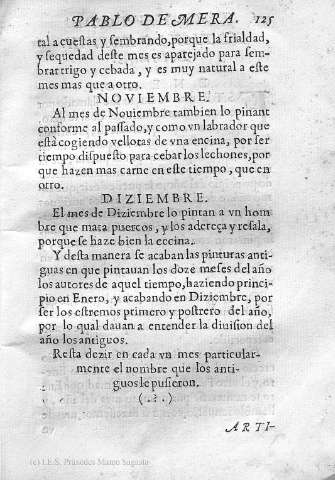 PABLO DE MERA. 125
tal a cuestas y sembrando, porque la frialdad,
y sequedad deste mes es aparejado para sem-
brar trigo y cebada, y es muy natural a este
mes mas que a otro.
NOVIEMBRE.
Al mes de Nouiembre tambien lo pinant
conforme al passado, y como vn labrador que
està cogiendo vellotas de vna encina, por ser
tiempo dispuesto para cebar los lechones, por
que hazen mas carne en este tiempo, que en
otro.
DIZIEMBRE.
El mes de Diziembre lo pintan a vn hom
bre que mata puercos, y los adereça y resala,
porque se haze bien la cecina.
Y desta manera se acaban las pinturas anti-
guas en que pintauan los doze meses del año
los autores de aquel tiempo, haziendo princi-
pio en Enero, y acabando en Diziembre, por
ser los estremos primero y postrero del año,
por lo qual dauan a entender la diuision del
año los antiguos.
Resta dezir en cada vn mes particular-
mente el nombre que los anti-
guos le pusieron.
(.?.)
ARTI-
(c) I.E.S. Práxedes Mateo Sagasta